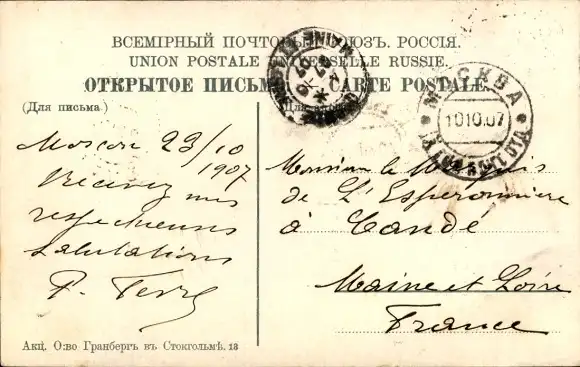 ВСЕМІРНЫЙ ПОЧТОВЫЙ СОЮЗЪ. РОССІЯ.
UNION POSTALE UNIVERSELLE RUSSIE.
ОТКРЫТОЕ ПИСЬМО. — CARTE POSTALE.
(Для письма.)
Moscou 23/10
1907
Recevez mes
respectueuses
salutations
P. Ferré
МОСКВА
10 10.07
MAINE
Monsieur le Marquis
de L'Esperonnière
à Candé
Maine et Loire
France
Акц. О:во Гранбергъ въ Стокгольмѣ. 13